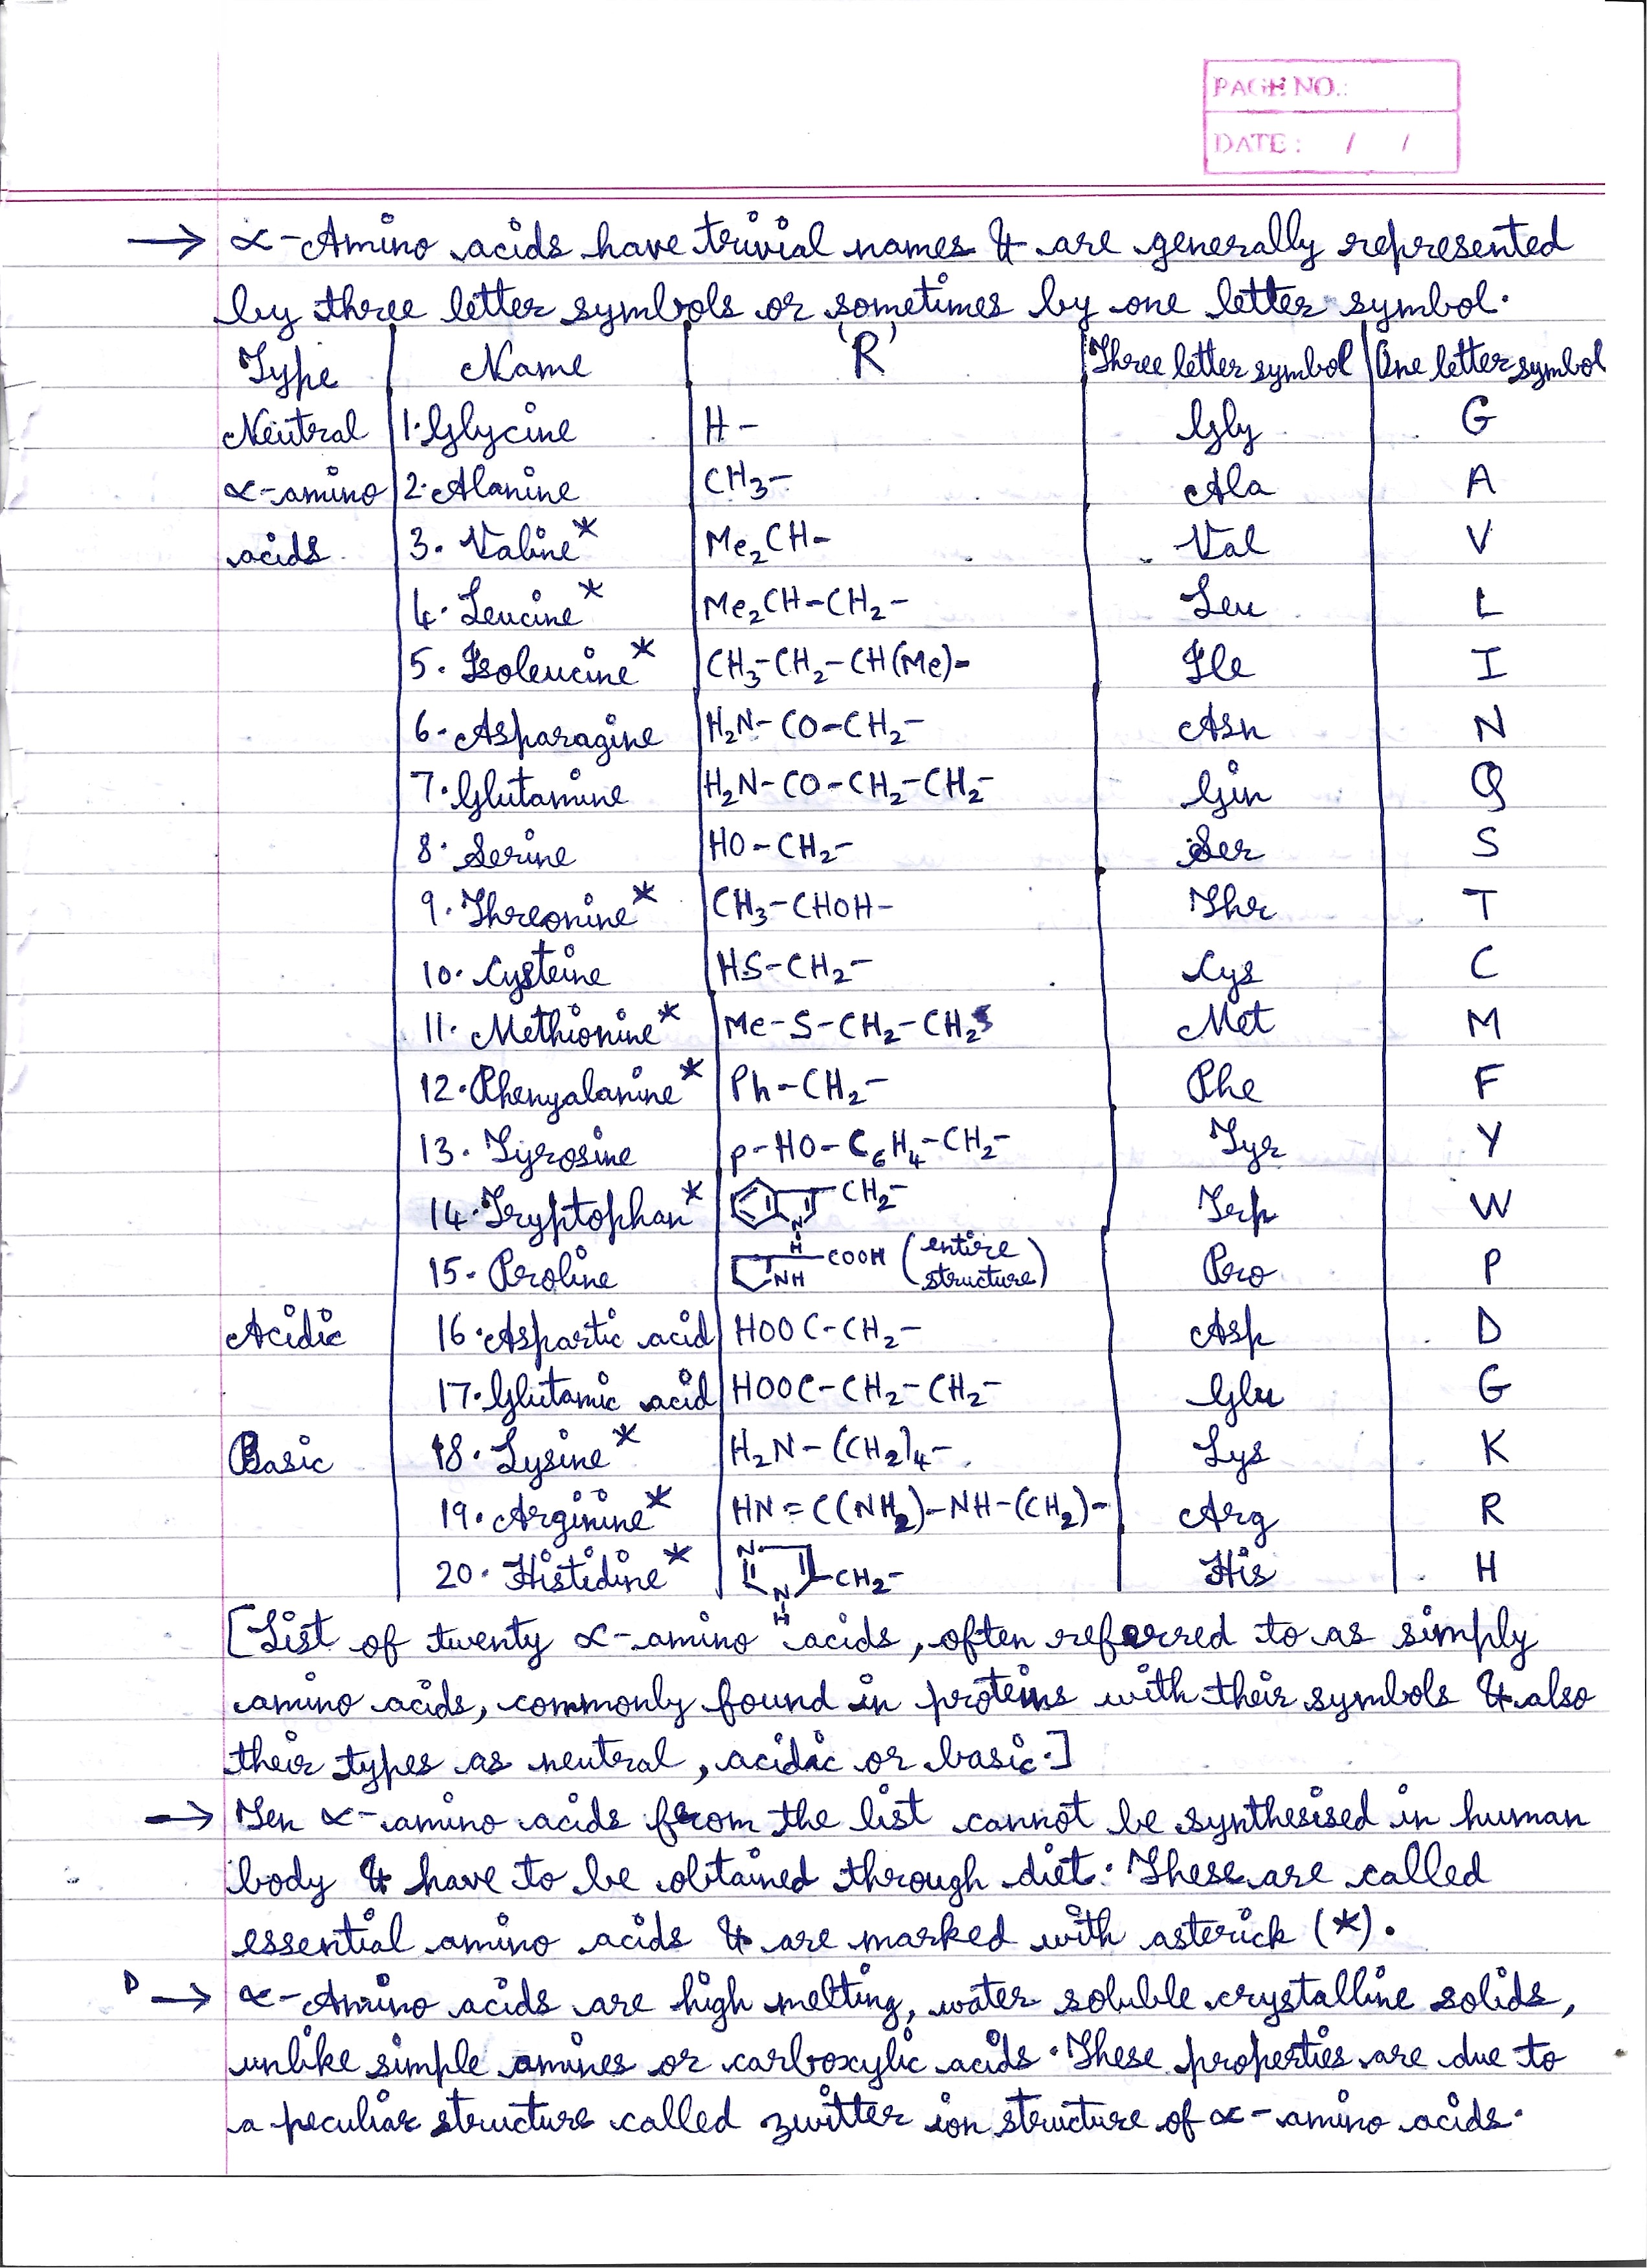 PAGE NO.:
DATE: / /
→ α-Amino acids have trivial names & are generally represented
by three letter symbols or sometimes by one letter symbol.
Type | Name | 'R' | Three letter symbol | One letter symbol
Neutral | 1. Glycine | H- | Gly | G
α-amino | 2. Alanine | CH3- | Ala | A
acids | 3. Valine* | Me2CH- | Val | V
4. Leucine* | Me2CH-CH2- | Leu | L
5. Isoleucine* | CH3-CH2-CH(Me)- | Ile | I
6. Asparagine | H2N-CO-CH2- | Asn | N
7. Glutamine | H2N-CO-CH2-CH2- | Gin | Q
8. Serine | HO-CH2- | Ser | S
9. Threonine* | CH3-CHOH- | Thr | T
10. Cysteine | HS-CH2- | Cys | C
11. Methionine* | Me-S-CH2-CH2- | Met | M
12. Phenyalanine* | Ph-CH2- | Phe | F
13. Tyrosine | p-HO-C6H4-CH2- | Tyr | Y
14. Tryptophan* | N H CH2- | Trp | W
15. Proline | NH COOH (entire structure) | Pro | P
Acidic | 16. Aspartic acid | HOOC-CH2- | Asp | D
17. Glutamic acid | HOOC-CH2-CH2- | Glu | G
Basic | 18. Lysine* | H2N-(CH2)4- | Lys | K
19. Arginine* | HN=C(NH2)-NH-(CH2)- | Arg | R
20. Histidine* | N N H CH2- | His | H
[List of twenty α-amino acids, often referred to as simply
amino acids, commonly found in proteins with their symbols & also
their types as neutral, acidic or basic.]
→ Ten α-amino acids from the list cannot be synthesised in human
body & have to be obtained through diet. These are called
essential amino acids & are marked with asterick (*).
→ α-Amino acids are high melting, water soluble crystalline solids,
unlike simple amines or carboxylic acids. These properties are due to
a peculiar structure called zwitter ion structure of α-amino acids.